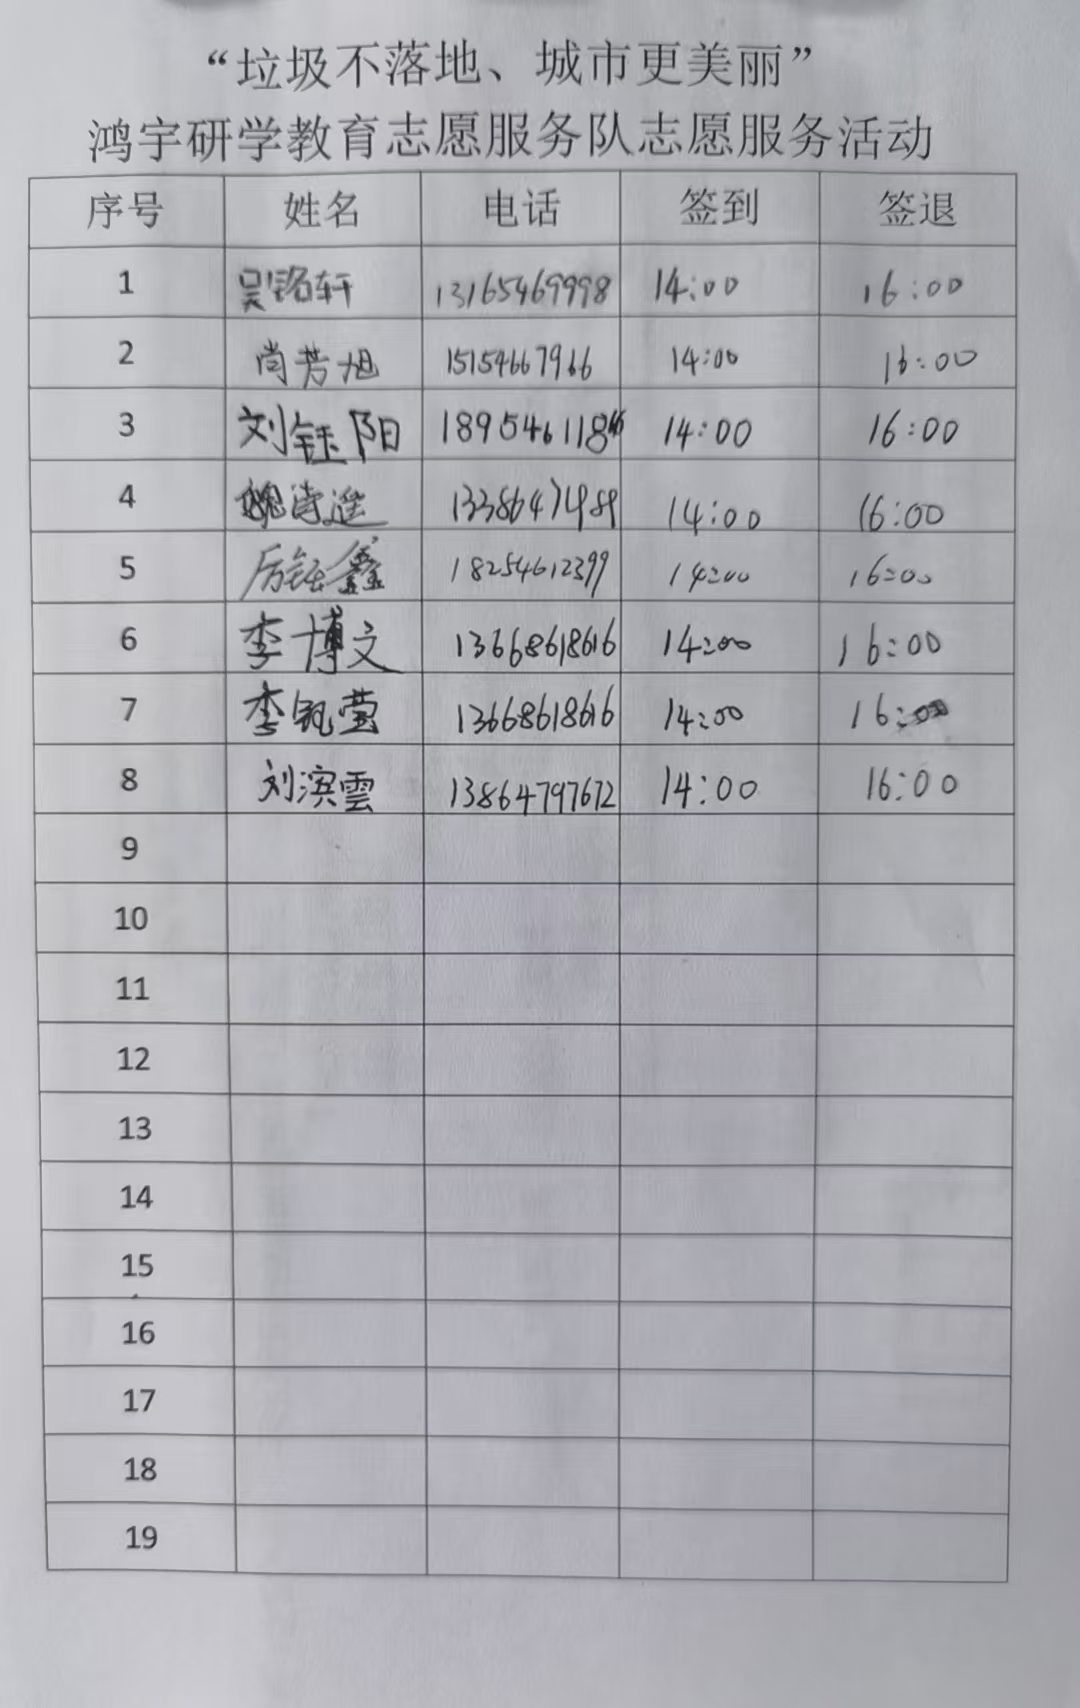 “垃圾不落地、城市更美丽”
鸿宇研学教育志愿服务队志愿服务活动
序号 姓名 电话 签到 签退
1 吴铭轩 13165469998 14:00 16:00
2 尚芳旭 15154667966 14:00 16:00
3 刘钰阳 189546118 14:00 16:00
4 魏 14:00 16:00
5 厉钰鑫 18254612399 14:00 16:00
6 李博文 13668618616 14:00 16:00
7 李 莹 13668618616 14:00 16:
8 刘滨雲 13864797672 14:00 16:00
9
10
11
12
13
14
15
16
17
18
19